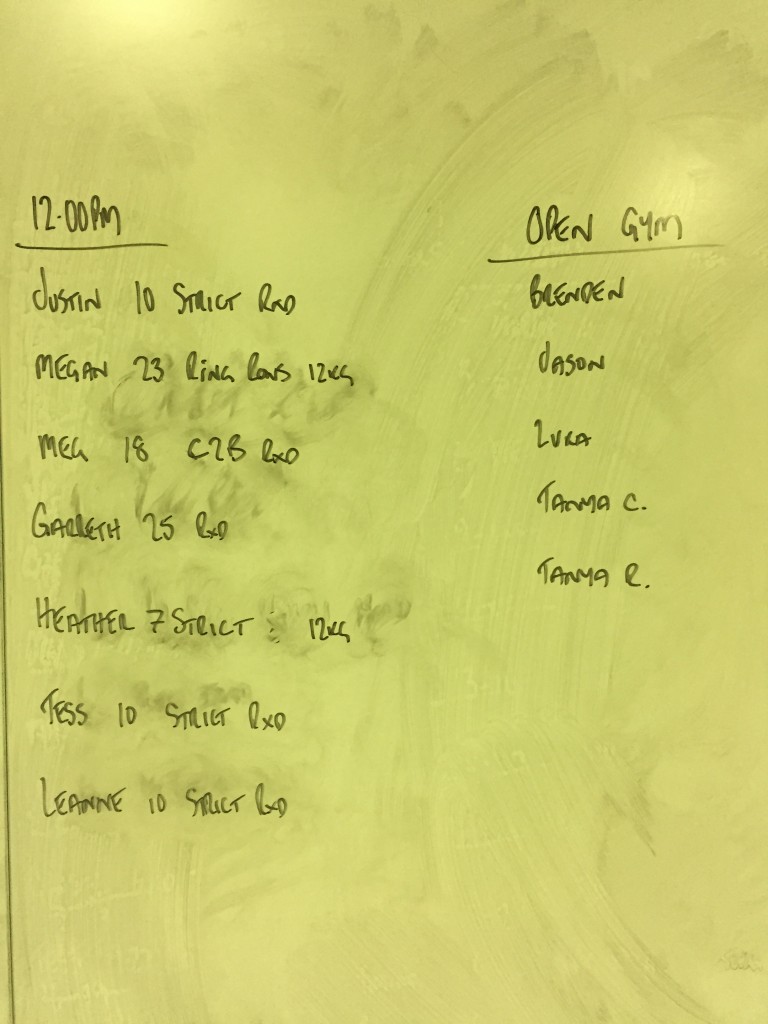 12.00PM
JUSTIN 10 STRICT RXD
MEGAN 23 RING ROWS 12KG
MEG 18 C2B RXD
GARRETH 25 RXD
HEATHER 7 STRICT : 12KG
TESS 10 STRICT RXD
LEANNE 10 STRICT RXD
OPEN GYM
BRENDEN
JASON
LUKA
TANYA C.
TANYA R.